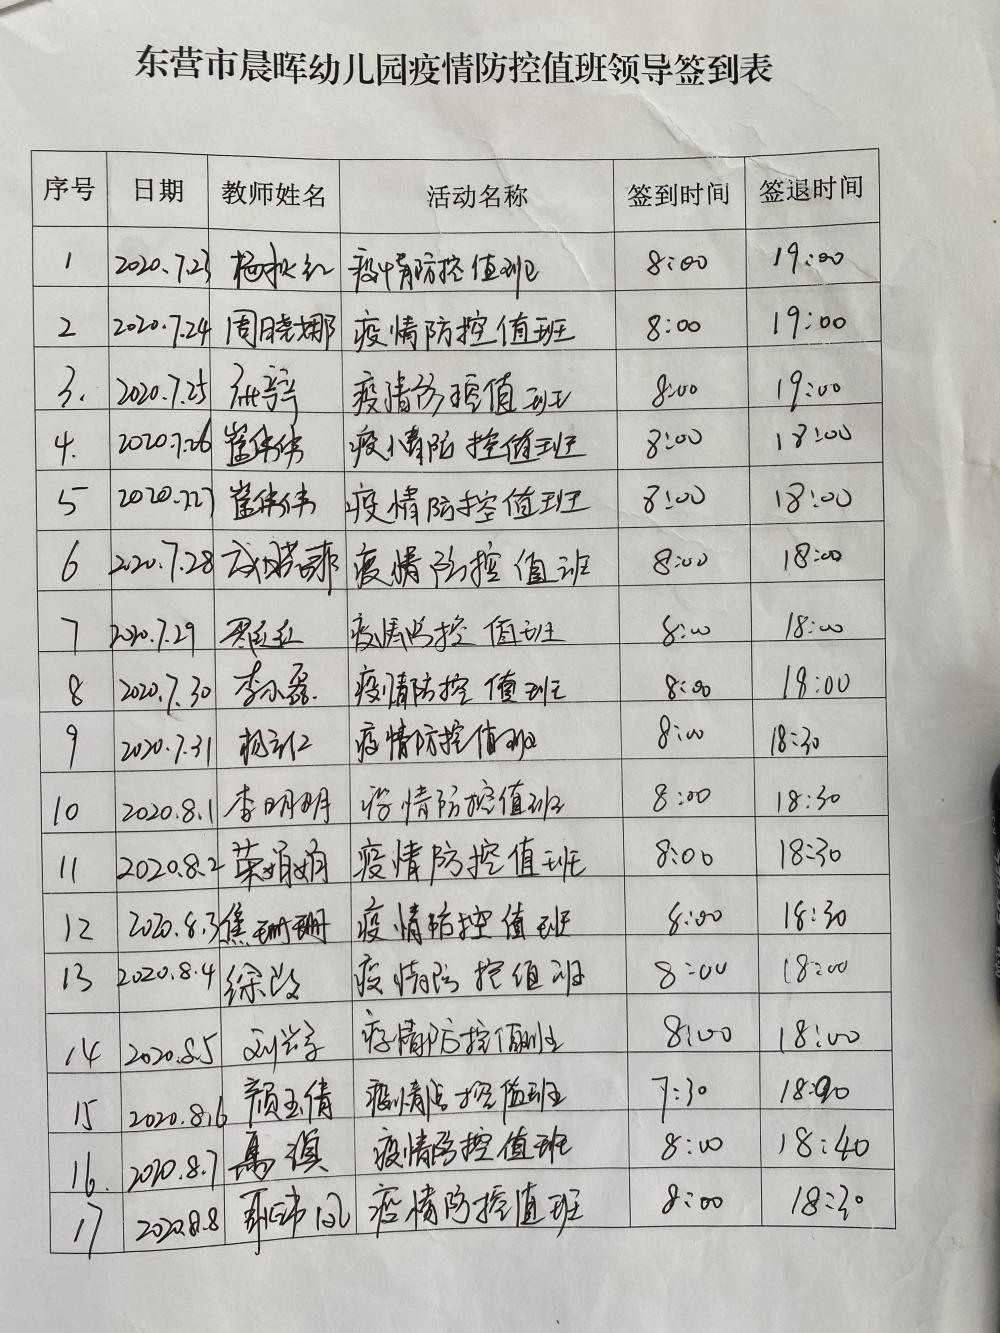 东营市晨晖幼儿园疫情防控值班领导签到表
序号 日期 教师姓名 活动名称 签到时间 签退时间
1 2020.7.23 杨秋红 疫情防控值班 8:00 19:00
2 2020.7.24 周晓娜 疫情防控值班 8:00 19:00
3. 2020.7.25 疫情防控值班 8:00 19:00
4. 2020.7.26 崔伟伟 疫情防控值班 8:00 18:00
5 2020.7.27 崔伟伟 疫情防控值班 8:00 18:00
6 2020.7.28 疫情防控值班 8:00 18:00
7 2020.7.29 疫情防控值班 8:00 18:00
8 2020.7.30 李小磊 疫情防控值班 8:00 18:00
9 2020.7.31 疫情防控值班 8:00 18:30
10 2020.8.1 李明明 疫情防控值班 8:00 18:30
11 2020.8.2 荣娟娟 疫情防控值班 8:00 18:30
12 2020.8.3 焦珊珊 疫情防控值班 8:00 18:30
13 2020.8.4 疫情防控值班 8:00 18:00
14 2020.8.5 疫情防控值班 8:00 18:00
15 2020.8.6 颜玉倩 疫情防控值班 7:30
16. 2020.8.7 疫情防控值班 8:00 18:40
17 2020.8.8 疫情防控值班 8:00 18:30